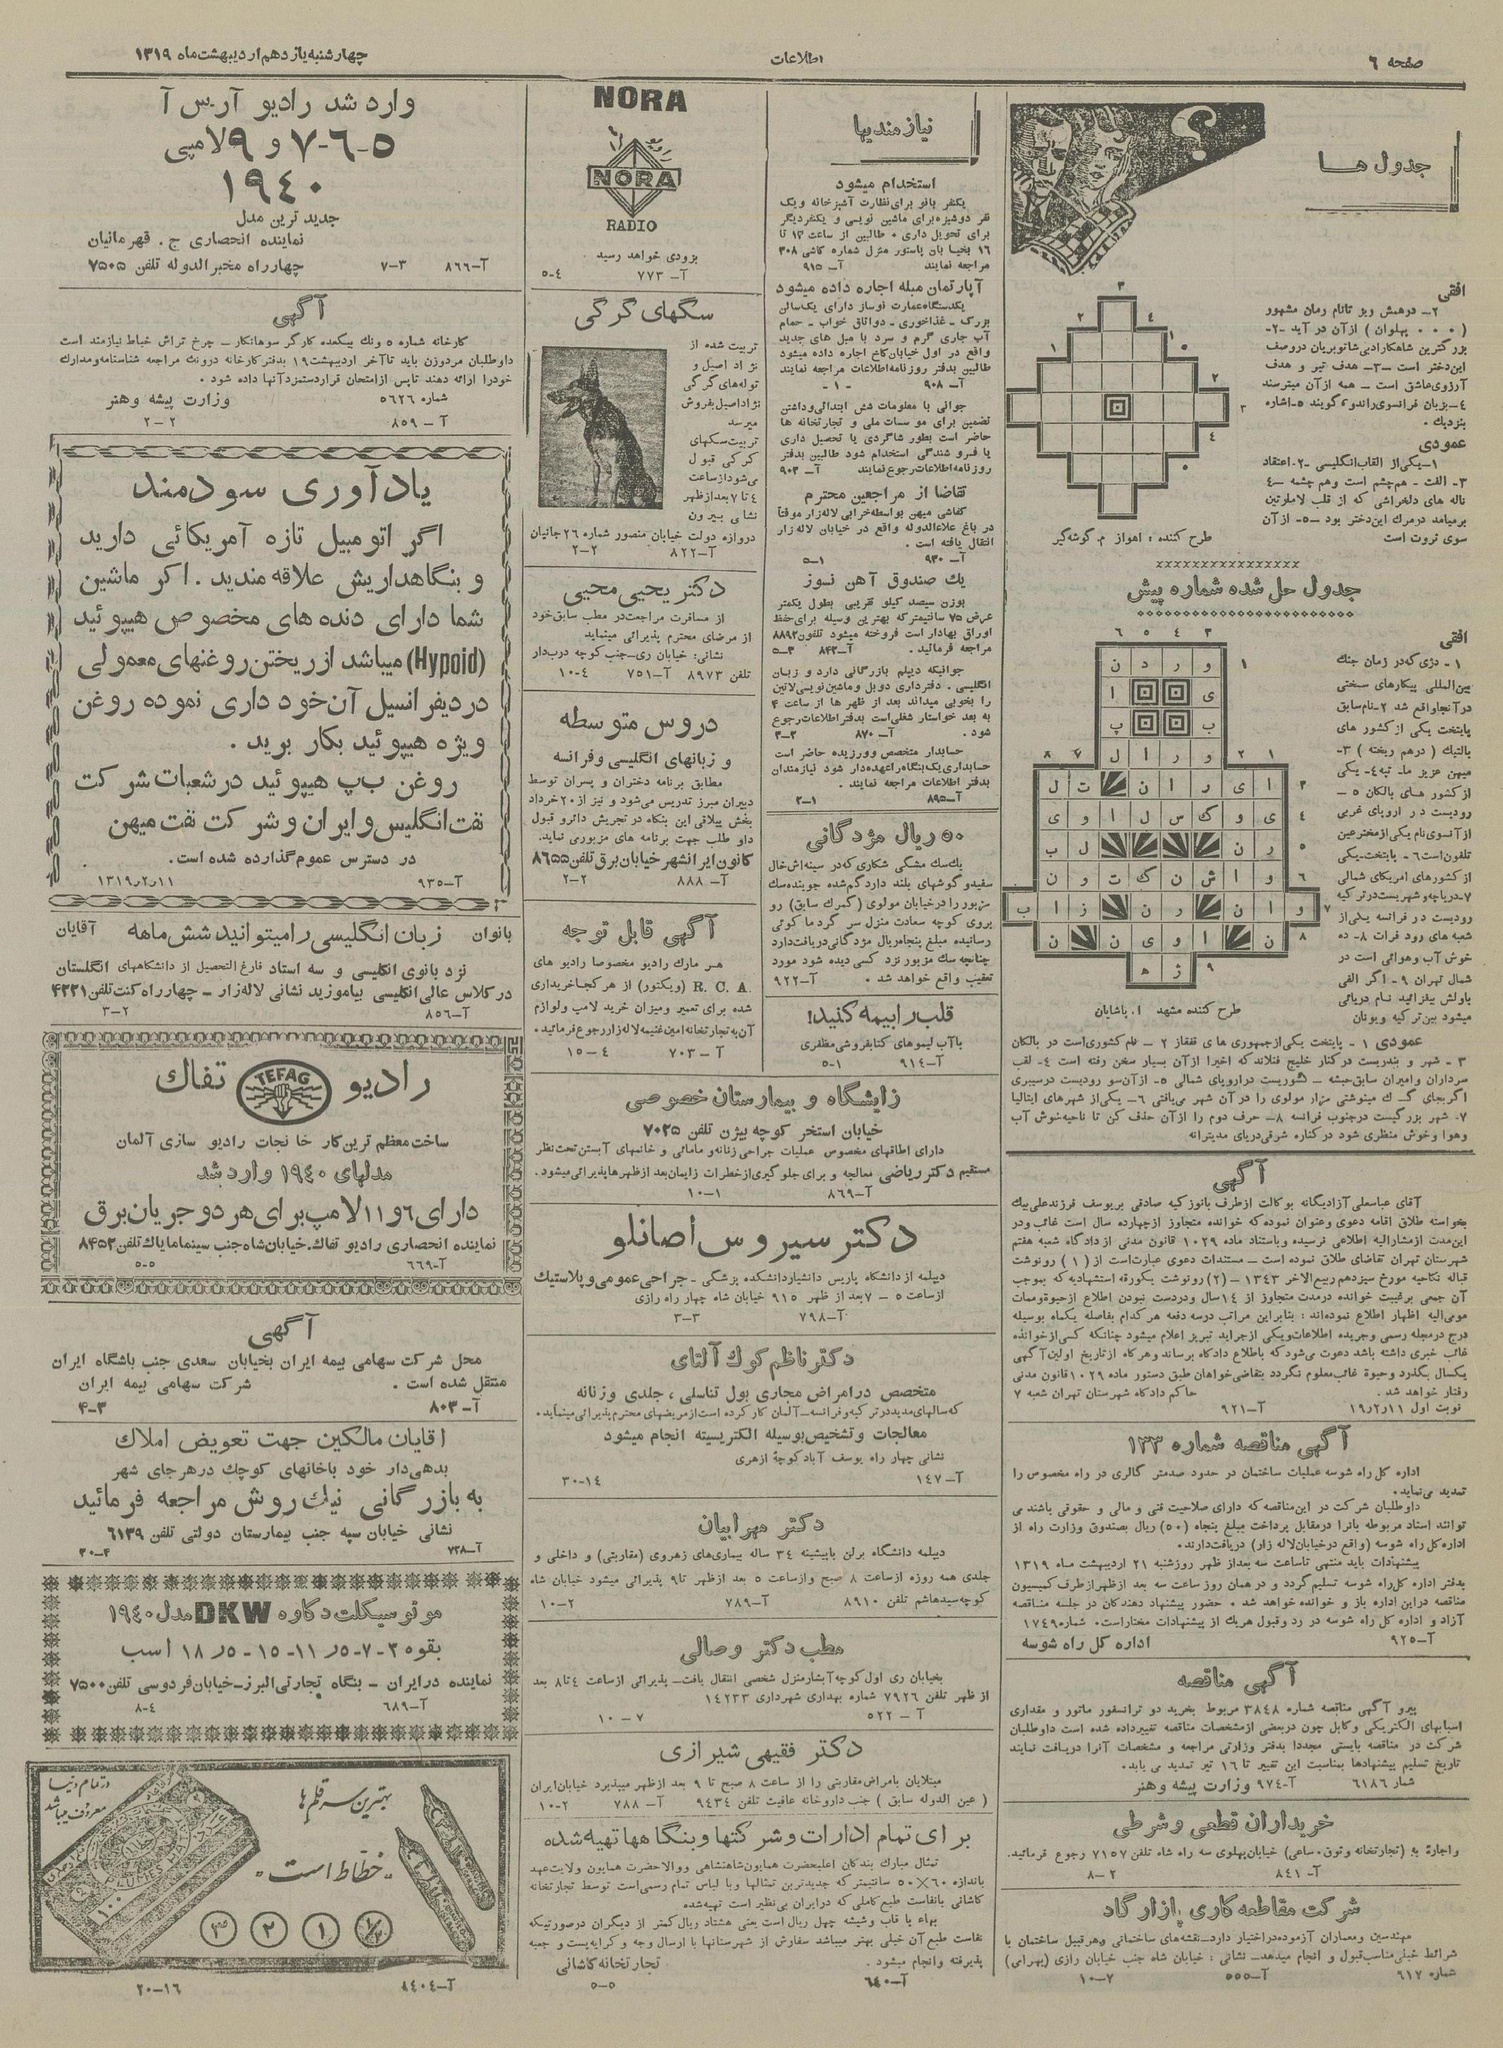 صفحه ۶
اطلاعات
چهارشنبه یازدهم اردیبهشت ماه ۱۳۱۹
جدول ها
افقی
۲- درهمش ویو تانام رمان مشهور
( ۰ ۰ ۰ پهلوان ) ازآن در آید -۲-
بزرگترین شاهکارادبی شاتوبریان دروصف
این دختر است -۳- هدف تیر و هدف
آرزوی عاشق است - همه ازآن میترسند
۴- بزبان فرانسوی راندو گویند ۵- اشاره
بنزدیك .
عمودی
۱- یکی از القاب انگلیسی -۲- اعتقاد
۳- الفت - هم چشم است وهم چشمه -۴
ناله های دلخراشی که از قلب لامارتین
برمیامد درمرك این دختر بود -۵- ازآن
سوی ثروت است
طرح کننده : اهواز م. گوشه گیر
جدول حل شده شماره پیش
افقی
۱- دژی که در زمان جنك
بین المللی پیکارهای سختی
درآنجا واقع شد ۲- نام سابق
پایتخت یکی از کشور های
بالتیك ( درهم ریخته ) ۳-
میهن عزیز ما- تپه ۴- یکی
از کشور های بالکان ۵ -
رودیست در اروپای غربی
از آنسوی نام یکی از مخترعین
تلفون است ۶- پایتخت یکی
از کشورهای امریکای شمالی
۷- دریاچه و شهریست در ترکیه
رودیست در فرانسه یکی از
شعبه های رود فرات ۸- ده
خوش آب وهوائی است در
شمال تهران ۹- اگر الفی
باولش بیفزائید نام دریائی
میشود بین ترکیه ویونان
طرح کننده مشهد ا. پاشایان
عمودی ۱ - پایتخت یکی ازجمهوری های قفقاز ۲ - نام کشوری است در بالکان
۳ - شهر و بندریست درکنار خلیج فنلاند که اخیرا ازآن بسیار سخن رفته است ۴- لقب
سرداران وامیران سابق حبشه - کشوریست دراروپای شمالی ۵- ازآن سو رودیست درسیبری
اگر بجای گ ـ ك مینوشتی مزار مولوی را درآن شهر می یافتی ۶- یکی از شهرهای ایتالیا
۷- شهر بزرگیست درجنوب فرانسه ۸- حرف دوم را ازآن حذف کن تا ناحیه خوش آب
وهوا وخوش منظری شود درکناره شرقی دریای مدیترانه
آگهی
آقای عباسعلی آزادیگانه بوکالت ازطرف بانو زکیه صادقی بر یوسف فرزند علی بیك
بخواسته طلاق اقامه دعوی وعنوان نموده که خوانده متجاوز ازچهارده سال است غائب ودر
این مدت ازمشارالیه اطلاعی نرسیده وباستناد ماده ۱۰۲۹ قانون مدنی از دادگاه شعبه هفتم
شهرستان تهران تقاضای طلاق نموده است - مستندات دعوی عبارت است از (۱) رونوشت
قباله نکاحیه مورخ سیزدهم ربیع الاخر ۱۳۴۳ - (۲) رونوشت یکورقه استشهادیه که بموجب
آن جمعی برغیبت خوانده درمدت متجاوز از ۱۴ سال ودردست نبودن اطلاع از حیوة وممات
مومی الیه اظهار اطلاع نموده اند : بنابراین مراتب درسه دفعه هر کدام بفاصله یکماه بوسیله
درج درمجله رسمی وجریده اطلاعات ویکی ازجراید تبریز اعلام میشود چنانکه کسی از خوانده
غائب خبری داشته باشد دعوت می شود که باطلاع دادگاه برساند وهرگاه ازتاریخ اولین آگهی
یکسال بگذرد وحیوة غائب معلوم نگردد بتقاضای خواهان طبق دستور ماده ۱۰۲۹ قانون مدنی
رفتار خواهد شد .
حاکم دادگاه شهرستان تهران شعبه ۷
نوبت اول ۱۹ر۲ر۱۱
آ-۹۲۱
آگهی مناقصه شماره ۱۳۳
اداره کل راه شوسه عملیات ساختمان در حدود صدمتر گالری در راه مخصوص را
تمدید می نماید .
داوطلبان شرکت در این مناقصه که دارای صلاحیت فنی و مالی و حقوقی باشند می
توانند اسناد مربوطه بآنرا درمقابل پرداخت مبلغ پنجاه (۵۰) ریال بصندوق وزارت راه از
اداره کل راه شوسه (واقع درخیابان لاله زار) دریافت دارند .
پیشنهادات باید منتهی تاساعت سه بعداز ظهر روزشنبه ۲۱ اردیبهشت ماه ۱۳۱۹
بدفتر اداره کل راه شوسه تسلیم گردد و در همان روز ساعت سه بعد ازظهر ازطرف کمیسیون
مناقصه دراین اداره باز و خوانده خواهد شد . حضور پیشنهاد دهندگان در جلسه مناقصه
آزاد و اداره کل راه شوسه در رد وقبول هریك از پیشنهادات مختار است . شماره ۱۷۴۹
آ-۹۲۵
اداره کل راه شوسه
آگهی مناقصه
پیرو آگهی مناقصه شماره ۳۸۴۸ مربوط بخرید دو ترانسفور ماتور و مقداری
اسبابهای الکتریکی وکابل چون دربعضی ازمشخصات مناقصه تغییر داده شده است داوطلبان
شرکت در مناقصه بایستی مجددا بدفتر وزارتی مراجعه و مشخصات آنرا دریافت نمایند
تاریخ تسلیم پیشنهادها بمناسبت این تغییر تا ۱۶ تیر تمدید می یابد .
شمار ۶۱۸۶
آ-۹۷۴ وزارت پیشه وهنر
خریداران قطعی وشرطی
واجاره به (تجارتخانه وثوق- ساعی) خیابان پهلوی سه راه شاه تلفن ۷۱۵۷ رجوع فرمائید.
آ- ۸۴۱
۲-۸
شرکت مقاطعه کاری پازارگاد
مهندسین ومعماران آزموده دراختیار دارد- نقشه های ساختمانی وهر قبیل ساختمان با
شرائط خیلی مناسب قبول و انجام میدهد- نشانی : خیابان شاه جنب خیابان رازی (بهرامی)
شماره ۶۱۷
آ-۵۵۵
۷-۱۰
نیازمندیها
استخدام میشود
یکنفر بانو برای نظارت آشپزخانه و یک
نفر دوشیزه برای ماشین نویسی و یکنفر دیگر
برای تحویل داری . طالبین از ساعت ۱۳ تا
۱۶ بخیابان پاستور منزل شماره کاشی ۳۰۸
مراجعه نمایند
آ- ۹۱۵
آپارتمان مبله اجاره داده میشود
یکدستگاه عمارت نوساز دارای یک سالن
بزرگ - غذاخوری - دو اتاق خواب - حمام
آب جاری گرم و سرد با مبل های جدید
واقع در اول خیابان کاخ اجاره داده میشود
طالبین بدفتر روزنامه اطلاعات مراجعه نمایند
آ- ۹۰۸
-۱-
جوانی با معلومات شش ابتدائی وداشتن
تضمین برای موسسات ملی و تجارتخانه ها
حاضر است بطور شاگردی یا تحصیل داری
یا فروشندگی استخدام شود طالبین بدفتر
روزنامه اطلاعات رجوع نمایند
آ- ۹۰۳
تقاضا از مراجعین محترم
کفاشی میهن بواسطه خرابی لاله زار موقتاً
در باغ علاءالدوله واقع در خیابان لاله زار
انتقال یافته است .
آ- ۹۳۰
۱-۵
یك صندوق آهن نسوز
بوزن سیصد کیلو تقریبی بطول یکمتر
عرض ۷۵ سانتیمتر که بهترین وسیله برای حفظ
اوراق بهادار است فروخته میشود تلفون ۸۸۹۲
مراجعه فرمائید .
آ-۸۴۲
۳-۵
جوانیکه دیپلم بازرگانی دارد و زبان
انگلیسی . دفترداری دوبل وماشین نویسی لاتین
را بخوبی میداند بعد از ظهر ها از ساعت ۴
به بعد خواستار شغلی است بدفتر اطلاعات رجوع
شود .
آ- ۸۷۰
۳-۳
حسابدار متخصص وورزیده حاضر است
حسابداری یک بنگاه راعهده دار شود نیازمندان
بدفتر اطلاعات مراجعه نمایند .
آ-۸۹۵
۱-۲
۵۰ ریال مژدگانی
یك سك مشگی شکاری که در سینه اش خال
سفید و گوشهای بلند دارد گم شده جوینده سك
مزبور را درخیابان مولوی (گمرك سابق) رو
بروی کوچه سعادت منزل سرگرد ماکوئی
رسانیده مبلغ پنجاه ریال مژدگانی دریافت دارد
چنانچه سك مزبور نزد کسی دیده شود مورد
تعقیب واقع خواهد شد .
آ-۹۲۲
قلب را بیمه کنید!
باآب لیموهای کتابفروشی مظفری
آ-۹۱۴
۱-۵
NORA
NORA
RADIO
بزودی خواهد رسید
آ- ۷۷۳
۴-۵
سگهای گرگی
تربیت شده از
نژاد اصیل و
توله های گرگی
نژاد اصیل بفروش
میرسد
تربیت سگهای
گرگی قبول
می شود ازساعت
۴ تا ۷ بعدازظهر
نشانی بیرون
دروازه دولت خیابان منصور شماره ۲۶ جانیان
آ-۸۲۲
۲-۲
دکتر یحیی محیی
از مسافرت مراجعت در مطب سابق خود
از مرضای محترم پذیرائی مینماید
نشانی: خیابان ری- جنب کوچه دربدار
تلفن ۸۹۷۳
آ- ۷۵۱
۴-۱۰
دروس متوسطه
و زبانهای انگلیسی و فرانسه
مطابق برنامه دختران و پسران توسط
دبیران مبرز تدریس می شود و نیز از ۲۰ خرداد
بخش ییلاقی این بنگاه در تجریش دائر و قبول
داوطلب جهت برنامه های مزبوری نماید.
کانون ایرانشهر خیابان برق تلفن ۸۶۵۵
آ- ۸۸۸
۲-۲
آگهی قابل توجه
هر مارك رادیو مخصوصا رادیو های
R. C. A. (ویکتور) از هر کجا خریداری
شده برای تعمیر ومیزان خرید لامپ ولوازم
آن به تجارتخانه امین غنیمه لاله زار رجوع فرمائید .
آ- ۷۰۳
۴ - ۱۵
زایشگاه و بیمارستان خصوصی
خیابان استخر کوچه بیژن تلفن ۷۰۲۵
دارای اطاقهای مخصوص عملیات جراحی زنانه و مامائی و خانمهای آبستن تحت نظر
مستقیم دکتر ریاضی معالجه و برای جلوگیری از خطرات زایمان بعد از ظهرها پذیرائی میشود.
آ-۸۶۹
۱-۱۰
دکتر سیروس اصانلو
دیپلمه از دانشگاه پاریس دانشیار دانشکده پزشگی - جراحی عمومی و پلاستیك
از ساعت ۵ - ۷ بعد از ظهر ۹۱۵ خیابان شاه چهار راه رازی
آ-۷۹۸
۳-۳
دکتر ناظم کوك آلتای
متخصص در امراض مجاری بول تناسلی ، جلدی وزنانه
که سالهای مدید در ترکیه وفرانسه- آلمان کار کرده است از مریضهای محترم پذیرائی مینماید.
معالجات وتشخیص بوسیله الکتریسیته انجام میشود
نشانی چهار راه یوسف آباد کوچهٔ ازهری
آ- ۱۴۷
۱۴-۳۰
دکتر مهرابیان
دیپلمه دانشگاه برلن باپیشینه ۳۴ ساله بیماری های زهروی (مقاربتی) و داخلی و
جلدی همه روزه ازساعت ۸ صبح وازساعت ۵ بعد ازظهر تا ۹ پذیرائی میشود خیابان شاه
کوچه سیدهاشم تلفن ۸۹۱۰
آ-۷۸۹
۲-۱۰
مطب دکتر وصالی
بخیابان ری اول کوچه آبشار منزل شخصی انتقال یافت- پذیرائی ازساعت ۴ تا ۸ بعد
از ظهر تلفن ۷۹۲۶ شماره بهداری شهرداری ۱۴۲۳۳
آ - ۵۲۲
۷ - ۱۰
دکتر فقیهی شیرازی
مبتلایان بامراض مقاربتی را از ساعت ۸ صبح تا ۹ بعد ازظهر میپذیرد خیابان ایران
( عین الدوله سابق ) جنب داروخانه عافیت تلفن ۹۴۳۴
آ- ۷۸۸
۲-۱۰
برای تمام ادارات و شرکتها و بنگاهها تهیه شده
تمثال مبارك بندگان اعلیحضرت همایون شاهنشاهی ووالاحضرت همایون ولایتعهد
باندازه ۶۰×۵۰ سانتیمتر که جدیدترین تمثالها وبا لباس تمام رسمی است توسط تجارتخانه
کاشانی بانفاست طبع کاملی که درایران بی نظیر است تهیه شده
بهاء با قاب وشیشه چهل ریال است یعنی هشتاد ریال کمتر از دیگران درصورتیکه
نفاست طبع آن خیلی بهتر میباشد سفارش از شهرستانها با ارسال وجه و کرایه پست و جعبه
پذیرفته وانجام میشود .
تجارتخانه کاشانی
آ-۶۴۰
۵-۵
وارد شد رادیو آر.س آ
۵-۶-۷ و ۹ لامپی
۱۹۴۰
جدید ترین مدل
نماینده انحصاری ج. قهرمانیان
چهارراه مخبرالدوله تلفن ۷۵۰۵
آ-۸۶۶
۳-۷
آگهی
کارخانه شماره ۵ ونك بیکعده کارگر سوهانکار - چرخ تراش خیاط نیازمند است
داوطلبان مردوزن باید تاآخر اردیبهشت ۱۹ بدفتر کارخانه درونك مراجعه شناسنامه ومدارك
خودرا ارائه دهند تاپس ازامتحان قرار دستمزدآنها داده شود .
شماره ۵۶۲۶
وزارت پیشه وهنر
آ- ۸۵۹
۲-۲
یادآوری سودمند
اگر اتومبیل تازه آمریکائی دارید
و بنگاهداریش علاقه مندید . اگر ماشین
شما دارای دنده های مخصوص هیپوئید
(Hypoid) میباشد از ریختن روغنهای معمولی
در دیفرانسیل آن خود داری نموده روغن
ویژه هیپوئید بکار برید .
روغن ب پ هیپوئید در شعبات شرکت
نفت انگلیس و ایران و شرکت نفت میهن
در دسترس عموم گذارده شده است .
آ-۹۳۵
۱۱ر۲ر۱۳۱۹
بانوان
زبان انگلیسی را میتوانید شش ماهه
آقایان
نزد بانوی انگلیسی و سه استاد فارغ التحصیل از دانشگاههای انگلستان
در کلاس عالی انگلیسی بیاموزید نشانی لاله زار - چهار راه کنت تلفن ۴۲۲۱
آ-۸۵۶
۲-۳
رادیو
TEFAG
تفاك
ساخت معظم ترین کار خانجات رادیو سازی آلمان
مدلهای ۱۹۴۰ وارد شد
دارای ۶ و ۱۱ لامپ برای هر دو جریان برق
نماینده انحصاری رادیو تفاك. خیابان شاه جنب سینما مایاك تلفن ۸۴۵۲
آ-۶۶۹
۵-۵
آگهی
محل شرکت سهامی بیمه ایران بخیابان سعدی جنب باشگاه ایران
منتقل شده است .
شرکت سهامی بیمه ایران
آ- ۸۰۳
۳-۴
اقایان مالکین جهت تعویض املاك
بدهی دار خود باخانهای کوچك درهر جای شهر
به بازرگانی نیك روش مراجعه فرمائید
نشانی خیابان سپه جنب بیمارستان دولتی تلفن ۶۱۳۹
آ-۷۳۸
۴-۳۰
موتوسیکلت دکاوه DKW مدل ۱۹۴۰
بقوه ۳-۷-۵ر۱۱-۱۵-۵ر۱۸ اسب
نماینده در ایران - بنگاه تجارتی البرز- خیابان فردوسی تلفن ۷۵۰۰
آ-۶۸۹
۴-۸
در تمام دنیا
معروف میباشد
بهترین سر قلم ها
"خطاط است"
½
۱
۲
آ-۸۴۰۴
۱۶-۲۰